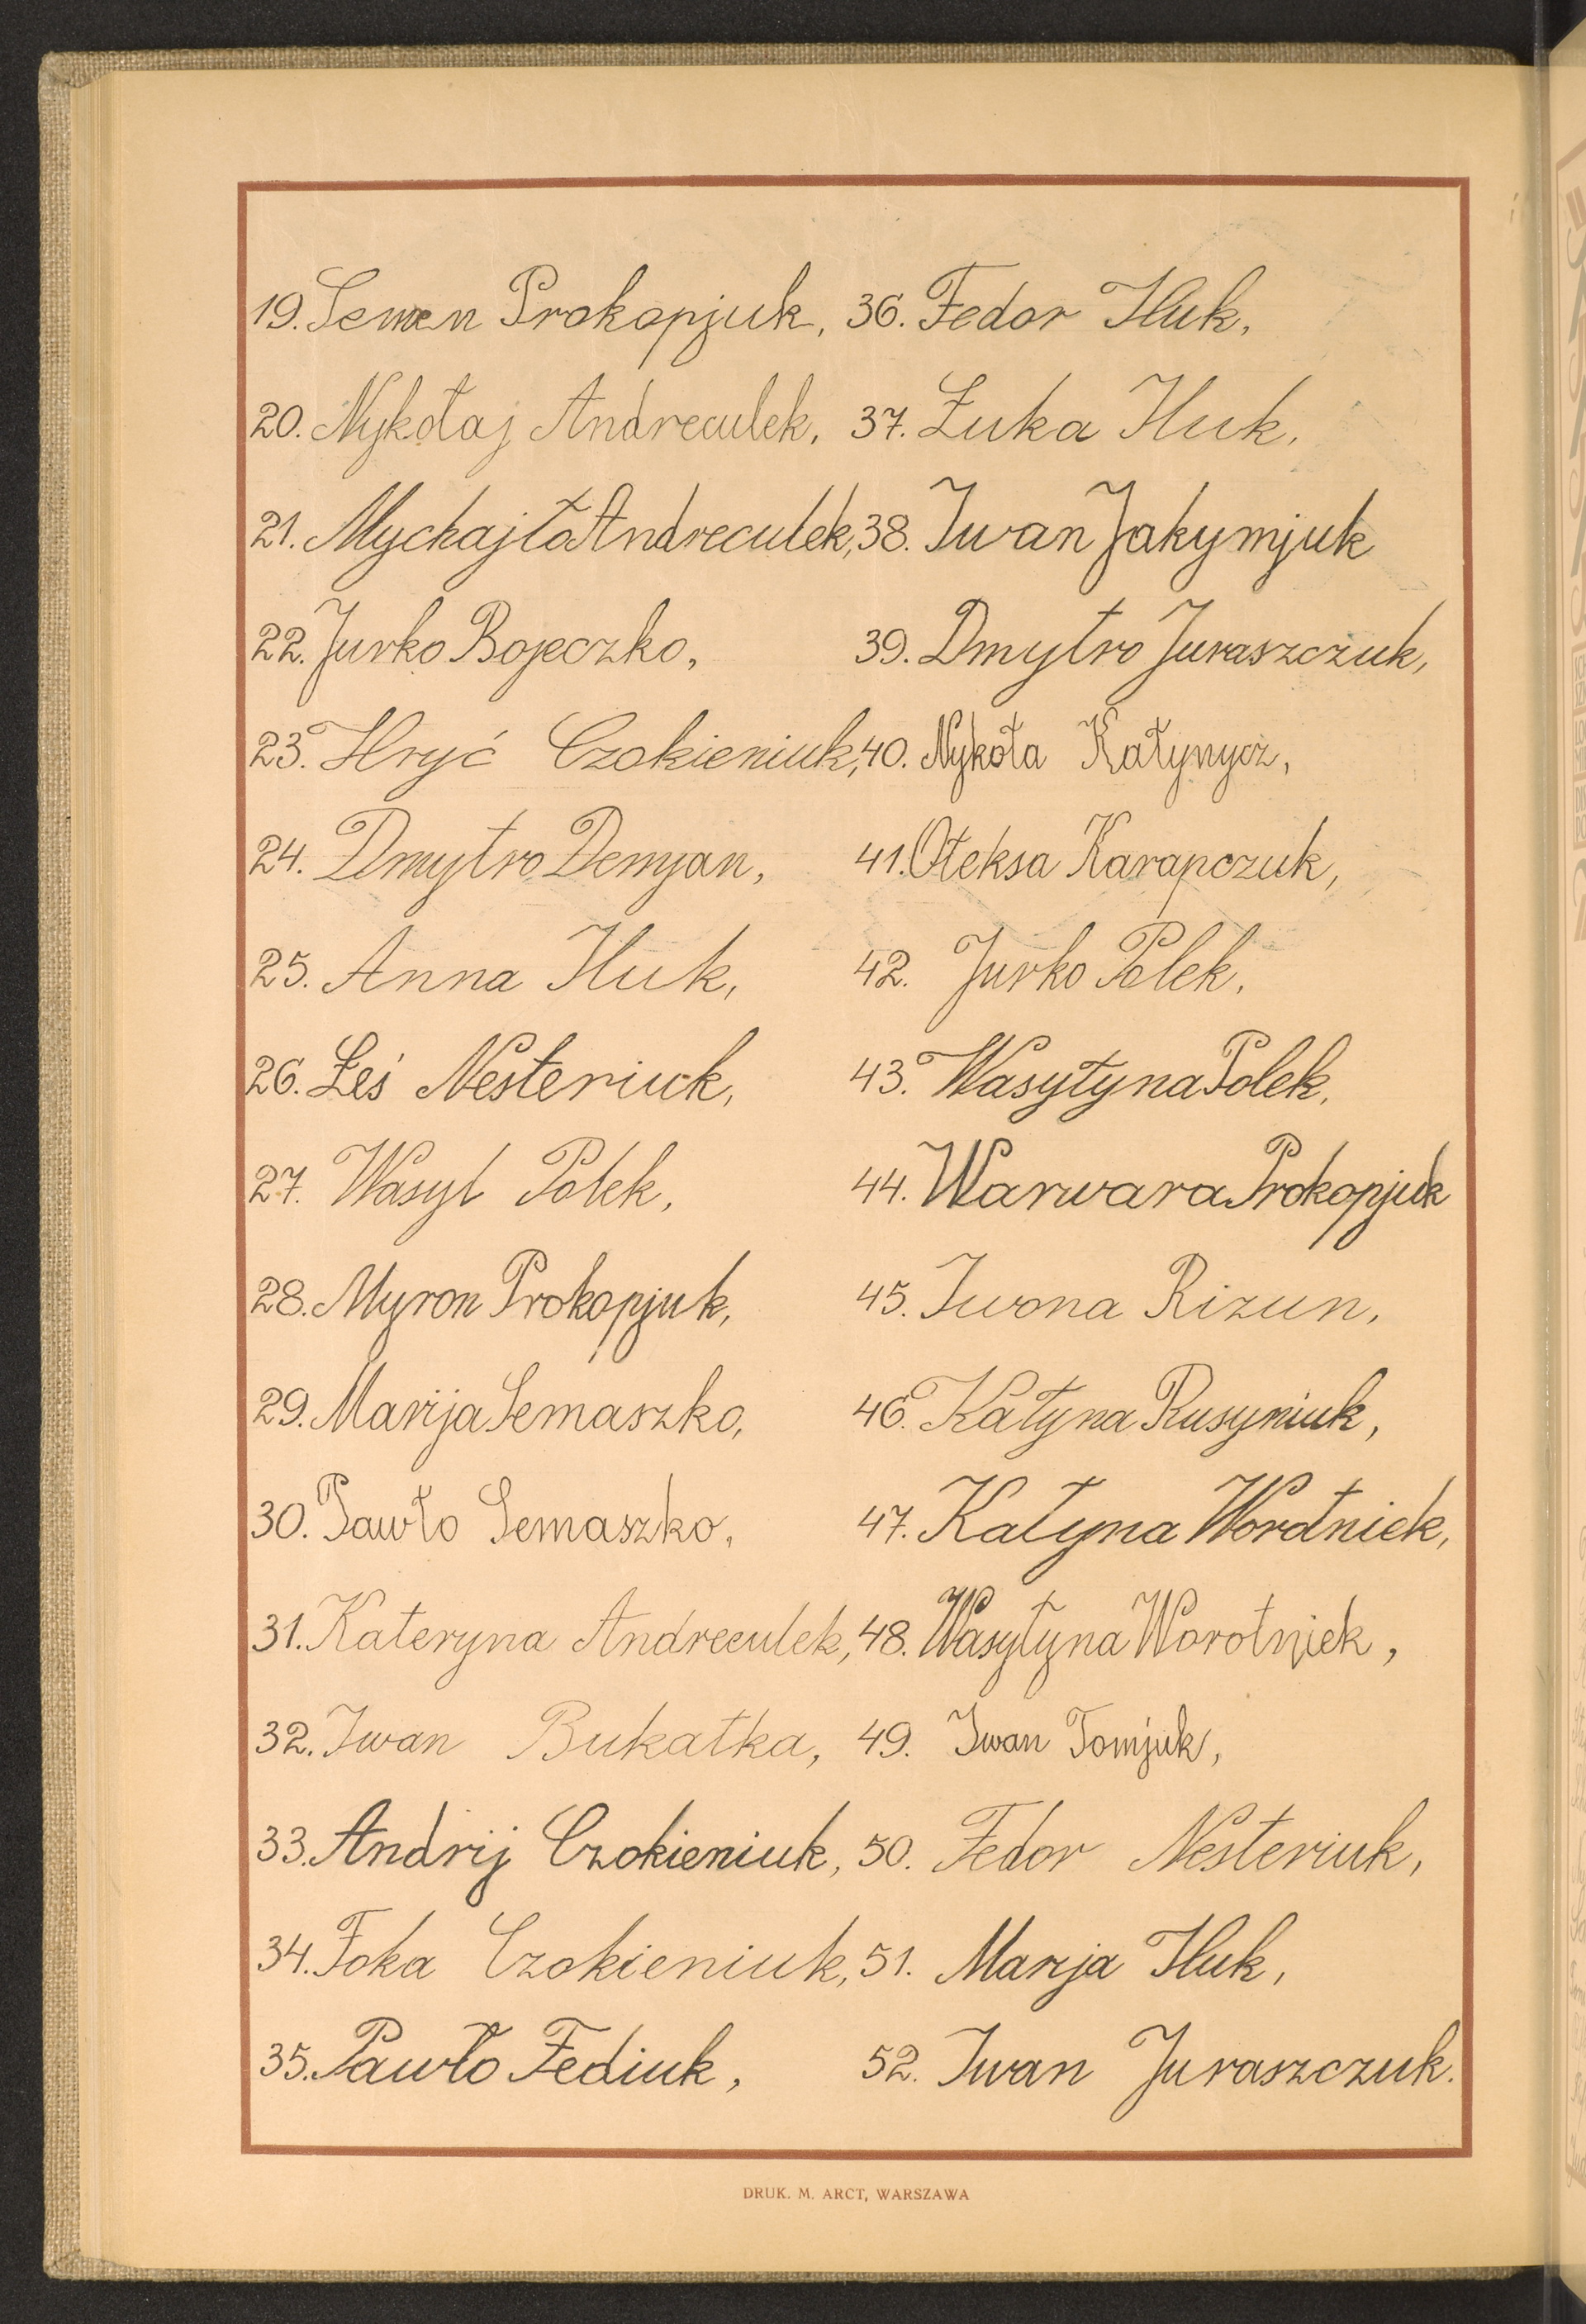 19. Semen Prokopjuk,
20. Nykołaj Andreculek,
21. Mychajło Andreculek,
22. Jurko Bojeczko,
23. Hryć Czokieniuk,
24. Dmytro Demjan,
25. Anna Huk,
26. Łeś Nesteriuk,
27. Wasyl Polek,
28. Myron Prokopjuk,
29. Marija Semaszko,
30. Pawło Semaszko,
31. Kateryna Andreculek,
32. Iwan Bukatka,
33. Andrij Czokieniuk,
34. Foka Czokieniuk,
35. Pawło Fediuk,
36. Fedor Huk,
37. Łuka Huk,
38. Iwan Jakymjuk
39. Dmytro Juraszczuk,
40. Nykoła Kałynycz,
41. Ołeksa Karapczuk,
42. Jurko Polek,
43. Wasyłyna Polek,
44. Warwara Prokopjuk
45. Iwona Rizun,
46. Kałyna Rusyniuk,
47. Kałyna Worotniek,
48. Wasyłyna Worotniek,
49. Iwan Tomjuk,
50. Fedor Nesteriuk,
51. Marija Huk,
52. Iwan Juraszczuk.
DRUK. M. ARCT, WARSZAWA